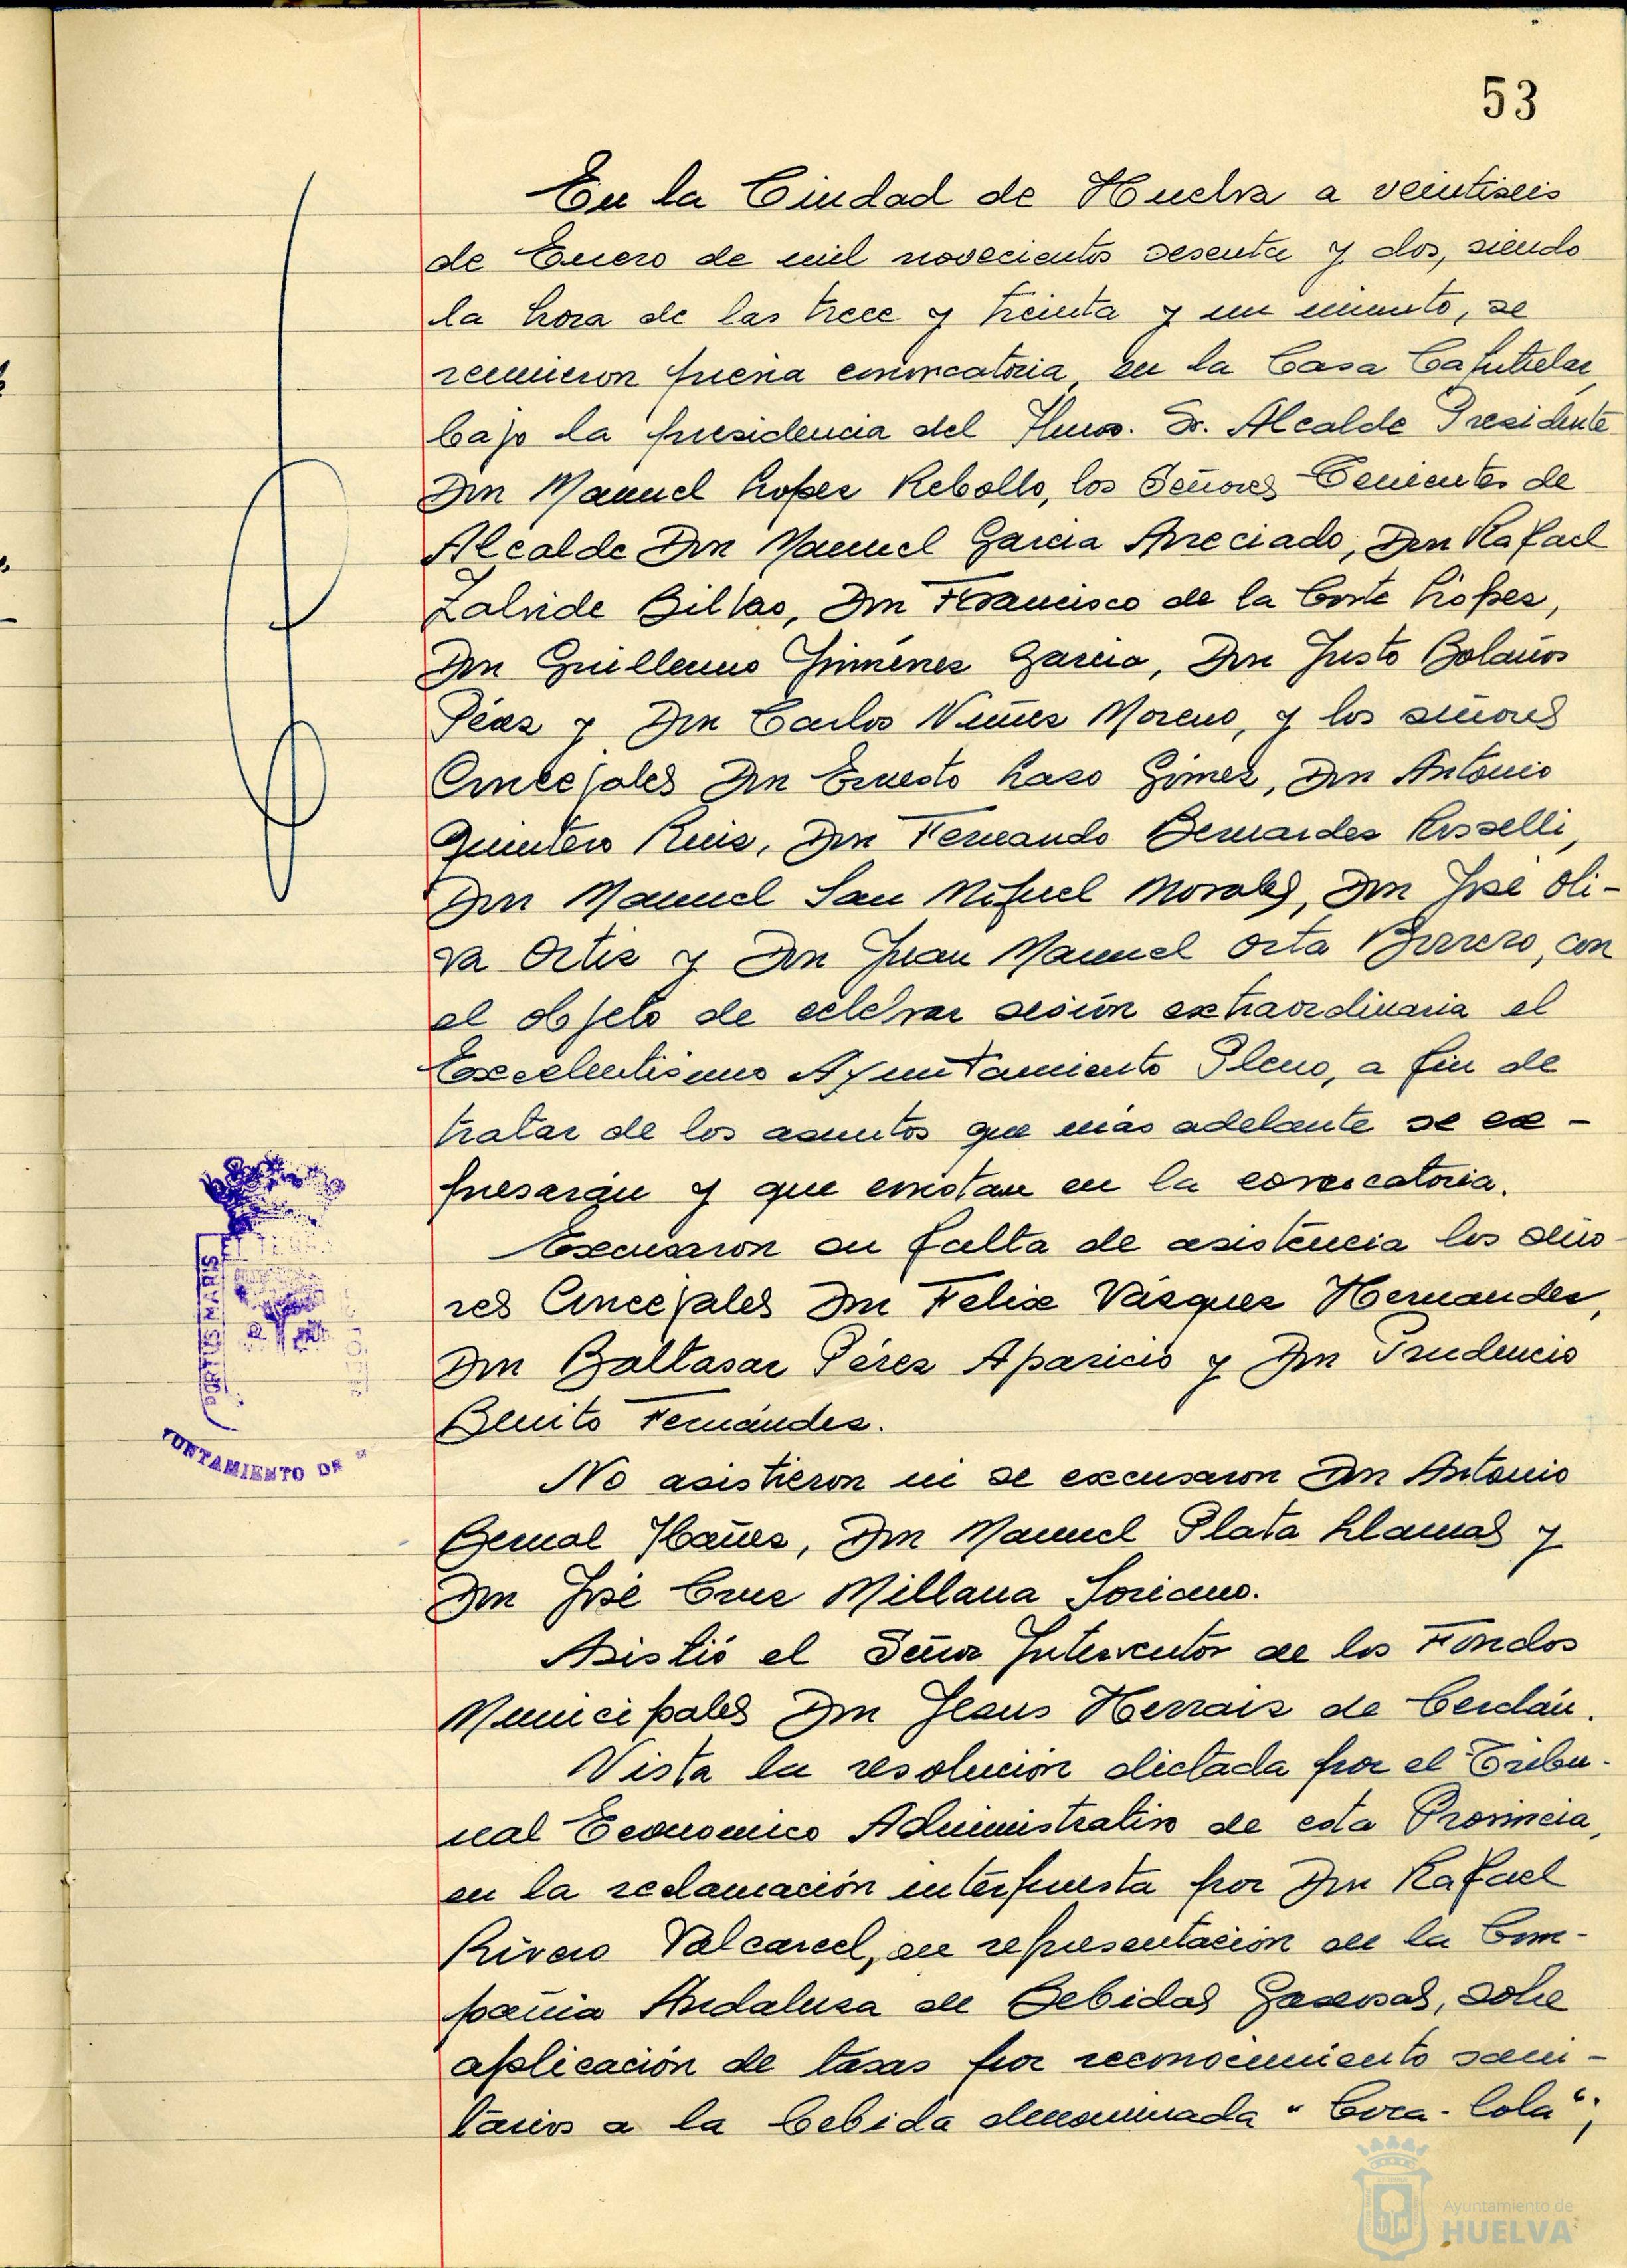 53
En la Ciudad de Huelva a veintiseis
de Enero de mil novecientos sesenta y dos, siendo
la hora de las trece y treinta y un minuto, se
reunieron previa convocatoria, en la Casa Capitular
bajo la presidencia del Ilmo. Sr. Alcalde Presidente
Don Manuel Lopez Rebollo, los Señores Tenientes de
Alcalde Don Manuel Garcia Apreciado, Don Rafael
Zalvide Bilbao, Don Francisco de la Corte López,
Don Guillermo Jiménez Garcia, Don Justo Bolaños
Pérez y Don Carlos Núñez Moreno, y los señores
Concejales Don Ernesto Lazo Gómez, Don Antonio
Quintero Ruiz, Don Fernando Bernardez Rosselli,
Don Manuel San Miguel Morales, Don José Oli-
va Ortiz y Don Juan Manuel Orta Borrero, con
el objeto de celebrar sesión extraordinaria el
Excelentisimo Ayuntamiento Pleno, a fin de
tratar de los asuntos que más adelante se ex-
presarán y que constan en la convocatoria.
Excusaron su falta de asistencia los seño-
res Concejales Don Felix Vázquez Hernandez,
Don Baltasar Pérez Aparicio y Don Prudencio
Benito Fernández.
No asistieron ni se excusaron Don Antonio
Bernal Ibañez, Don Manuel Plata Llamas y
Don José Cruz Millana Soriano.
Asistió el Señor Interventor de los Fondos
Municipales Don Jesus Herraiz de Cerdán.
Vista la resolución dictada por el Tribu-
nal Economico Administrativo de esta Provincia,
en la reclamación interpuesta por Don Rafael
Rivero Valcarcel, en representación de la Com-
pañia Andaluza de Bebidas Gaseosas, sobre
aplicación de tasas por reconocimiento sani-
tarios a la bebida denominada "Coca-Cola";
PORTUS MARIS
ET TERRÆ
YUNTAMIENTO DE
Ayuntamiento de
HUELVA